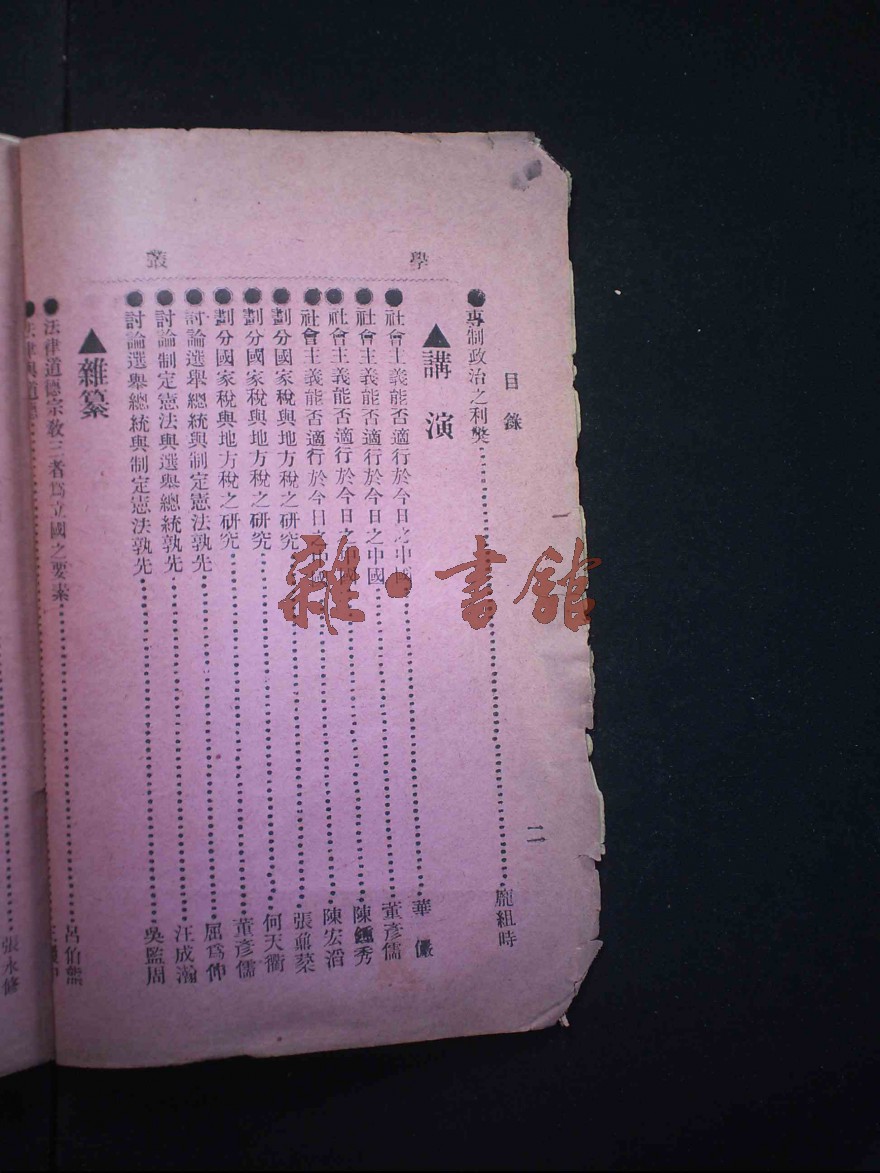 學叢
目錄 二
●專制政治之利獘……龐組時
▲講演
●社會主義能否適行於今日之中國……華儼
●社會主義能否適行於今日之中國……董彥儒
●社會主義能否適行於今日之中國……陳鍾秀
●社會主義能否適行於今日之中國……陳宏滔
●劃分國家稅與地方稅之研究……張鼎棻
●劃分國家稅與地方稅之研究……何天衢
●劃分國家稅與地方稅之研究……董彥儒
●討論選舉總統與制定憲法孰先……屈爲伸
●討論制定憲法與選舉總統孰先……汪成瀚
●討論選舉總統與制定憲法孰先……吳監周
▲雜纂
●法律道德宗教三者爲立國之要素……呂伯熊
●法律與道德……王
張永修
雜·書館